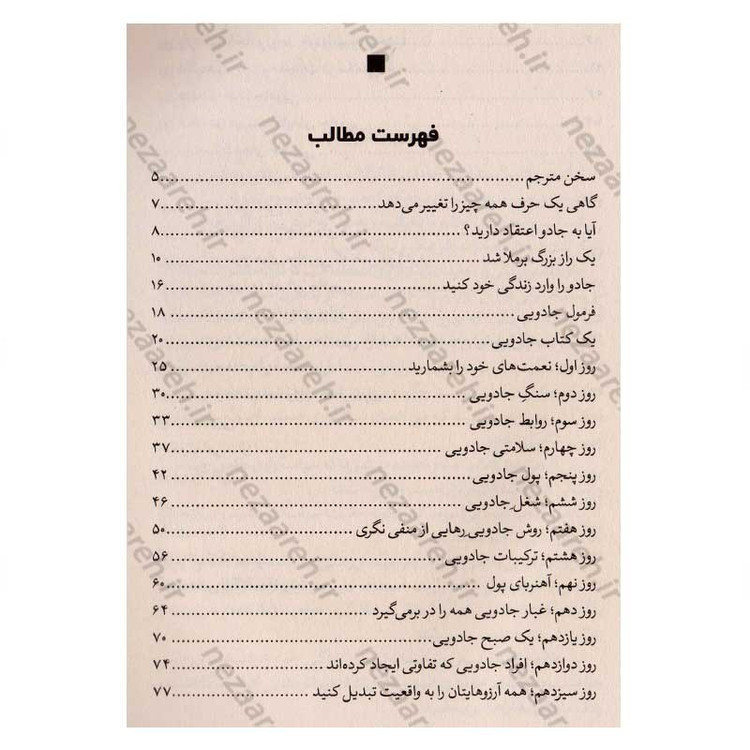 فهرست مطالب
سخن مترجم ۵
گاهی یک حرف همه چیز را تغییر می‌دهد ۷
آیا به جادو اعتقاد دارید؟ ۸
یک راز بزرگ برملا شد ۱۰
جادو را وارد زندگی خود کنید ۱۶
فرمول جادویی ۱۸
یک کتاب جادویی ۲۰
روز اول؛ نعمت‌های خود را بشمارید ۲۵
روز دوم؛ سنگِ جادویی ۳۰
روز سوم؛ روابط جادویی ۳۳
روز چهارم؛ سلامتی جادویی ۳۷
روز پنجم؛ پول جادویی ۴۲
روز ششم؛ شغلِ جادویی ۴۶
روز هفتم؛ روش جادوییِ رهایی از منفی نگری ۵۰
روز هشتم؛ ترکیبات جادویی ۵۶
روز نهم؛ آهنربای پول ۶۰
روز دهم؛ غبار جادویی همه را در برمی‌گیرد ۶۴
روز یازدهم؛ یک صبح جادویی ۷۰
روز دوازدهم؛ افراد جادویی که تفاوتی ایجاد کرده‌اند ۷۴
روز سیزدهم؛ همه آرزوهایتان را به واقعیت تبدیل کنید ۷۷
nezaareh.ir